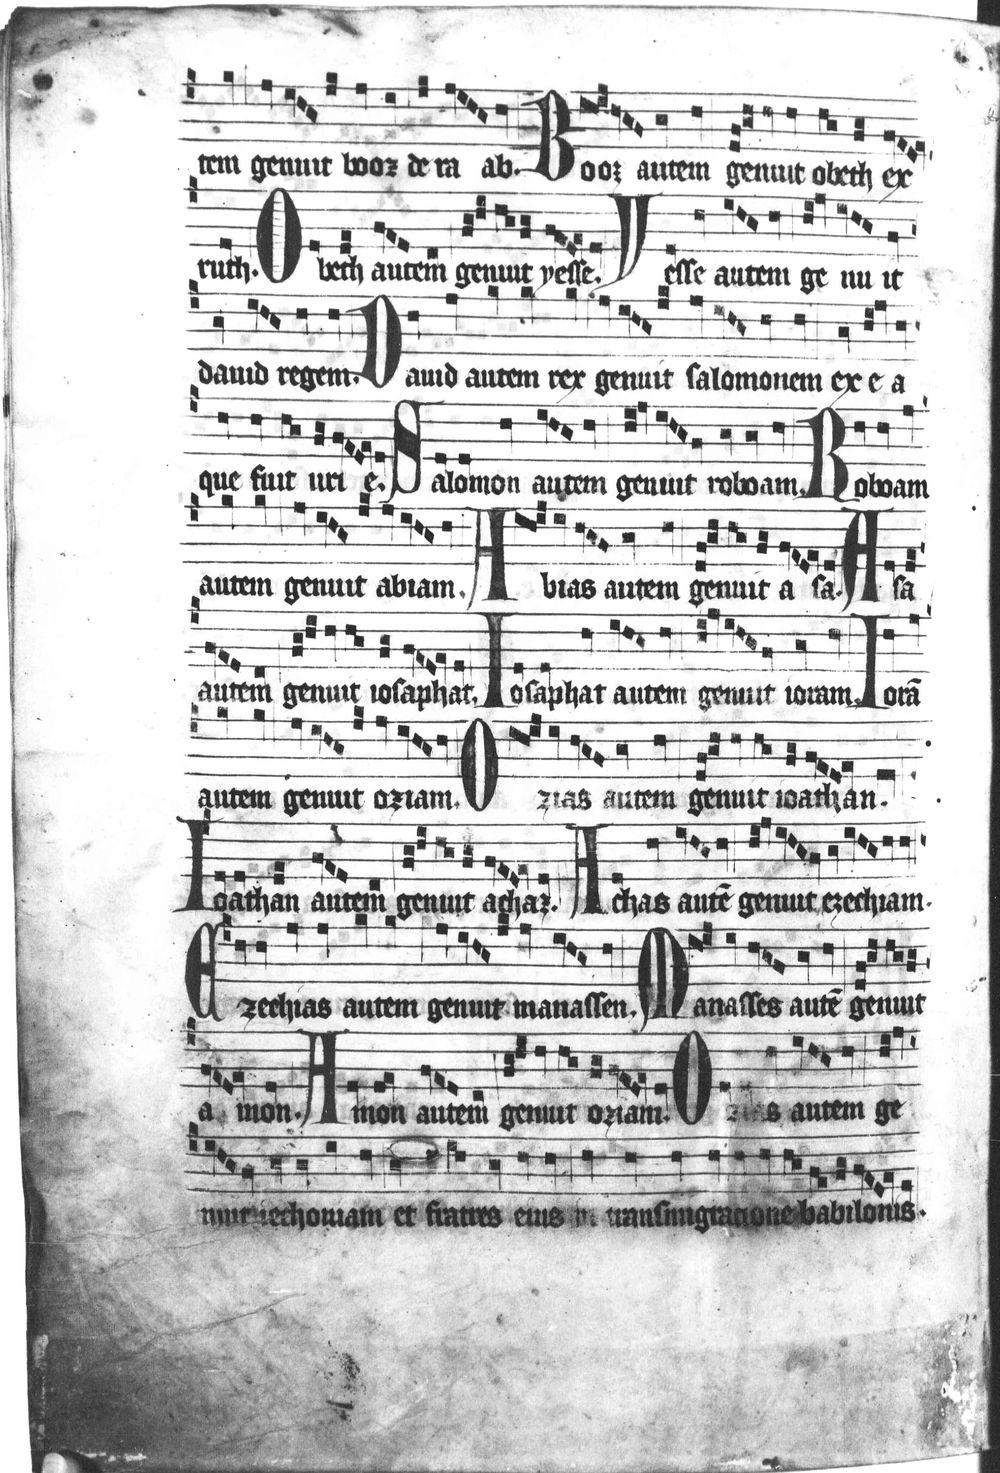 tem genuit booz de ra ab. Booz autem genuit obeth ex
ruth. Obeth autem genuit yesse. Yesse autem ge nu it
dauid regem. Dauid autem rex genuit salomonem ex e a
que fuit uri e. Salomon autem genuit roboam. Roboam
autem genuit abiam. Abias autem genuit a sa. Asa
autem genuit iosaphat. Iosaphat autem genuit ioram. Iorā
autem genuit oziam. Ozias autem genuit ioathan.
Ioathan autem genuit achaz. Achas autē genuit ezechiam.
Ezechias autem genuit manassen. Manasses autē genuit
a mon. Amon autem genuit oziam. Ozias autem ge
nuit iechoniam et fratres eius in transmigracione babilonis.